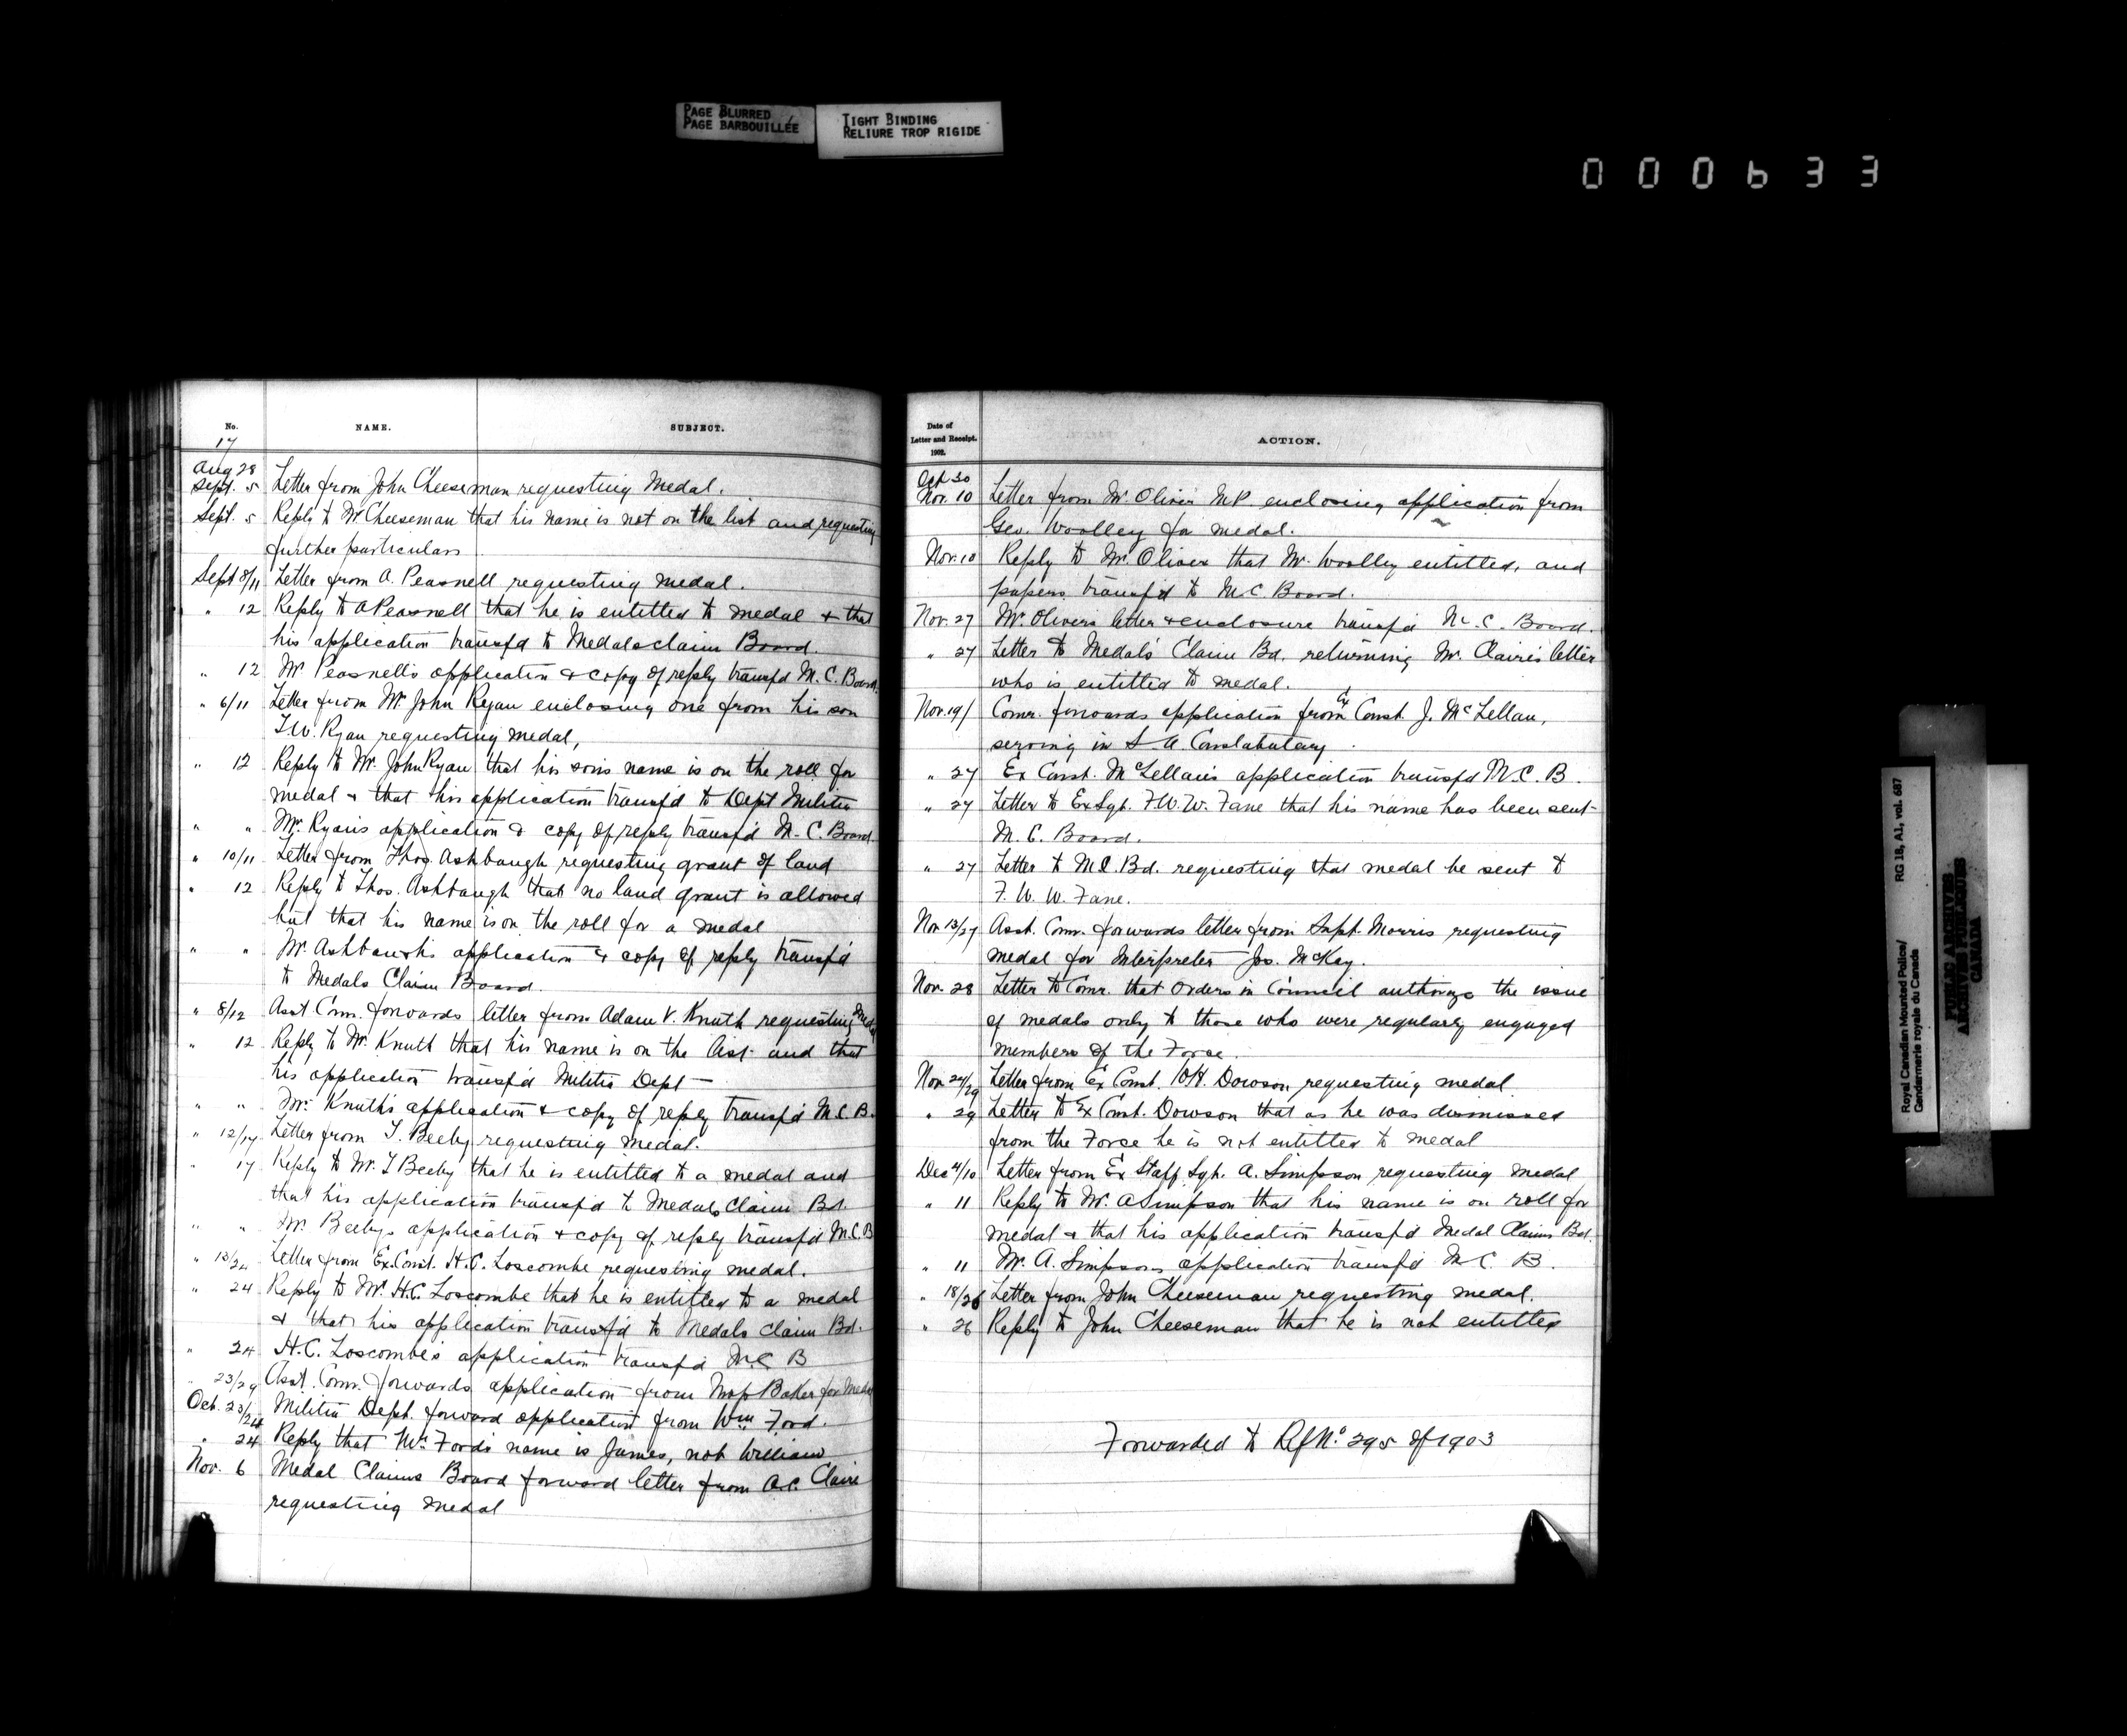 PAGE BLURRED
PAGE BARBOUILLÉE
TIGHT BINDING
RELIURE TROP RIGIDE
000633
No.
NAME.
SUBJECT.
17
Aug 28
Sept. 5 Letter from John Cheeseman requesting Medal.
Sept. 5 Reply to Mr Cheeseman that his name is not on the list and requesting
further particulars
Sept 8/11 Letter from A. Peasnell requesting medal.
" 12 Reply to A Peasnell that he is entitled to medal & that
his application transf'd to Medals claim Board.
" 12 Mr Peasnell's application & copy of reply transf'd M. C. Board.
" 6/11 Letter from Mr John Ryan enclosing one from his son
T.W. Ryan requesting medal,
" 12 Reply to Mr. John Ryan that his son's name is on the roll for
medal & that his application transf'd to Dept Militia
" " Mr. Ryan's application & copy of reply transf'd M. C. Board.
" 10/11 Letter from Thos. Ashbaugh requesting grant of land
" 12 Reply to Thos. Ashbaugh that no land grant is allowed
but that his name is on the roll for a medal
" " Mr. application & copy of reply transf'd
to Medals Claim Board.
" 8/12 Asst Com. forwards letter from Adam V. Knuth requesting Medal
" 12 Reply to Mr. Knuth that his name is on the list and that
his application transf'd Militia Dept —
" " Mr. Knuth's application & copy of reply transf'd M.C.B.
" 12/17 Letter from T. Beeby requesting Medal.
" 17 Reply to Mr. T Beeby that he is entitled to a medal and
that his application transf'd to Medals Claim Bd.
" " Mr. Beeby's application & copy of reply transf'd M.C.B
" 13/24 Letter from Ex. Const. H.C. Loscombe requesting medal.
" 24 Reply to Mr. H.C. Loscombe that he is entitled to a medal
& that his application transf'd to Medals claim Bd.
" 24 H.C. Loscombe's application transf'd M.C B
" 23/29 Asst. Com. forwards application from Baker for Medal
Oct. 23/24 Militia Dept. forward application from Wm Ford.
" 24 Reply that Mr Ford's name is James, not William
Nov. 6 Medal Claims Board forward letter from A.C. Claire
requesting medal
Date of
Letter and Receipt.
1902.
ACTION.
Oct 30
Nov. 10 Letter from Mr. Oliver M.P. enclosing application from
Geo. Woolley for medal.
Nov. 10 Reply to Mr. Oliver that Mr. Woolley entitled, and
papers transf'd to M.C. Board.
Nov. 27 Mr. Oliver's letter & enclosure transf'd M. C. Board.
" 27 Letter to Medals' Claim Bd. returning Mr. Claire's letter
who is entitled to medal.
Nov. 19/ Comr. forwards application from Ex Const. J. McLellan,
serving in S. A. Constabulary.
" 27 Ex Const. McLellan's application transf'd M.C. B.
" 27 Letter to Ex Sgt. F.W.W. Fane that his name has been sent
M. C. Board.
" 27 Letter to M.C. Bd. requesting that medal be sent to
F. W. W. Fane.
Nov 13/27 Asst. Com. forwards letter from Supt. Morris requesting
medal for Interpreter Jos. McKay.
Nov. 28 Letter to Comr. that Orders in Council authorize the issue
of medals only to those who were regularly engaged
members of the Force.
Nov. 24/29 Letter from Ex Const. Dowson requesting medal
" 29 Letter to Ex Const. Dowson that as he was dismissed
from the Force he is not entitled to medal
Dec 4/10 Letter from Ex Staff Sgt. A. Simpson requesting medal
" 11 Reply to Mr. A Simpson that his name is on roll for
medal & that his application transf'd Medal Claims Bd.
" 11 Mr. A. Simpson's application transf'd M C. B.
" 18/26 Letter from John Cheeseman requesting medal.
" 26 Reply to John Cheeseman that he is not entitled
Forwarded to Ref No. 295 of 1903
Royal Canadian Mounted Police/ RG 18, A1, vol. 687
Gendarmerie royale du Canada
PUBLIC ARCHIVES
ARCHIVES PUBLIQUES
CANADA